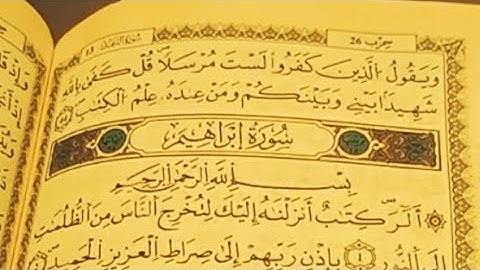 حزب 26
وَيَقُولُ الَّذِينَ كَفَرُوا لَسْتَ مُرْسَلًا قُلْ كَفَىٰ بِاللَّهِ
شَهِيدًا بَيْنِي وَبَيْنَكُمْ وَمَنْ عِندَهُ عِلْمُ الْكِتَٰبِ
سُورَةُ إِبْرَاهِيم
بِسْمِ اللَّهِ الرَّحْمَٰنِ الرَّحِيمِ
الٓر كِتَٰبٌ أَنزَلْنَٰهُ إِلَيْكَ لِتُخْرِجَ النَّاسَ مِنَ الظُّلُمَٰتِ
إِلَى النُّورِ بِإِذْنِ رَبِّهِمْ إِلَىٰ صِرَاطِ الْعَزِيزِ الْحَمِيدِ